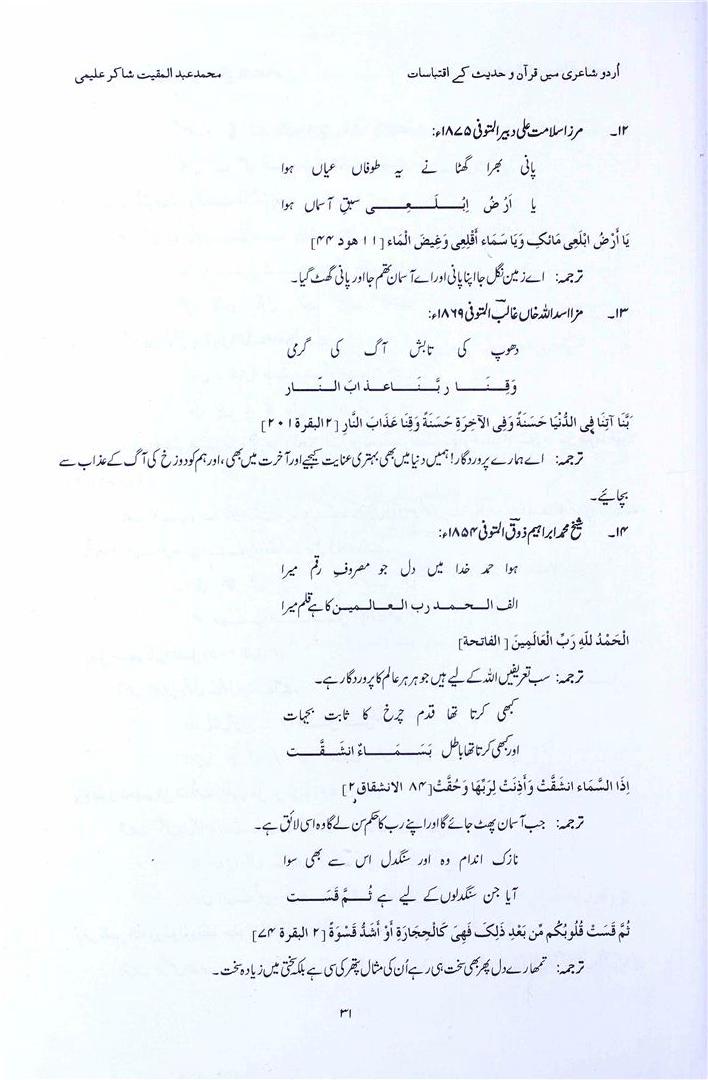 اُردو شاعری میں قرآن و حدیث کے اقتباسات
محمد عبد المقیت شاکر علیمی
۱۲۔ مرزا سلامت علی دبیر المتوفی ۱۸۷۵ء:
پانی بھرا گھٹا نے یہ طوفاں عیاں ہوا
یا اَرْضُ اِبْـلَـعِـی سبقِ آسماں ہوا
يَا أَرْضُ ابْلَعِي مَائكِ وَيَا سَمَاء أَقْلِعِي وَغِيضَ الْمَاء [۱۱ هود ۴۴]
ترجمہ: اے زمین نگل جا اپنا پانی اور اے آسمان تھم جا اور پانی گھٹ گیا۔
۱۳۔ مرزا اسد اللہ خاں غالبؔ المتوفی ۱۸۶۹ء:
دھوپ کی تابش آگ کی گرمی
وَقِـنَـا رَبَّـنَـا عـذابَ الـنَّـار
رَبَّنَا آتِنَا فِي الدُّنْيَا حَسَنَةً وَفِي الآخِرَةِ حَسَنَةً وَقِنَا عَذَابَ النَّارِ [۲البقرة ۲۰۱]
ترجمہ: اے ہمارے پروردگار! ہمیں دنیا میں بھی بہتری عنایت کیجیے اور آخرت میں بھی، اور ہم کو دوزخ کی آگ کے عذاب سے
بچائیے۔
۱۴۔ شیخ محمد ابراہیم ذوقؔ المتوفی ۱۸۵۴ء:
ہوا حمد خدا میں دل جو مصروفِ رقم میرا
الف الـحـمـد رب الـعـالـمـین کا ہے قلم میرا
الْحَمْدُ للهِ رَبِّ الْعَالَمِينَ [الفاتحة]
ترجمہ: سب تعریفیں اللہ کے لیے ہیں جو ہر ہر عالم کا پروردگار ہے۔
کبھی کرتا تھا قدم چرخ کا ثابت بجہات
اور کبھی کرتا تھا باطل بَسَـمَـاءٌ انشَـقَّـت
إِذَا السَّمَاء انشَقَّتْ وَأَذِنَتْ لِرَبِّهَا وَحُقَّتْ [۸۴ الانشقاق ۲]
ترجمہ: جب آسمان پھٹ جائے گا اور اپنے رب کا حکم سن لے گا وہ اسی لائق ہے۔
نازک اندام وہ اور سنگدل اس سے بھی سوا
آیا جن سنگدلوں کے لیے ہے ثُـمَّ قَسَـت
ثُمَّ قَسَتْ قُلُوبُكُم مِّن بَعْدِ ذَلِكَ فَهِيَ كَالْحِجَارَةِ أَوْ أَشَدُّ قَسْوَةً [۲ البقرة ۷۴]
ترجمہ: تمھارے دل پھر بھی سخت ہی رہے اُن کی مثال پتھر کی سی ہے بلکہ سختی میں زیادہ سخت۔
۳۱